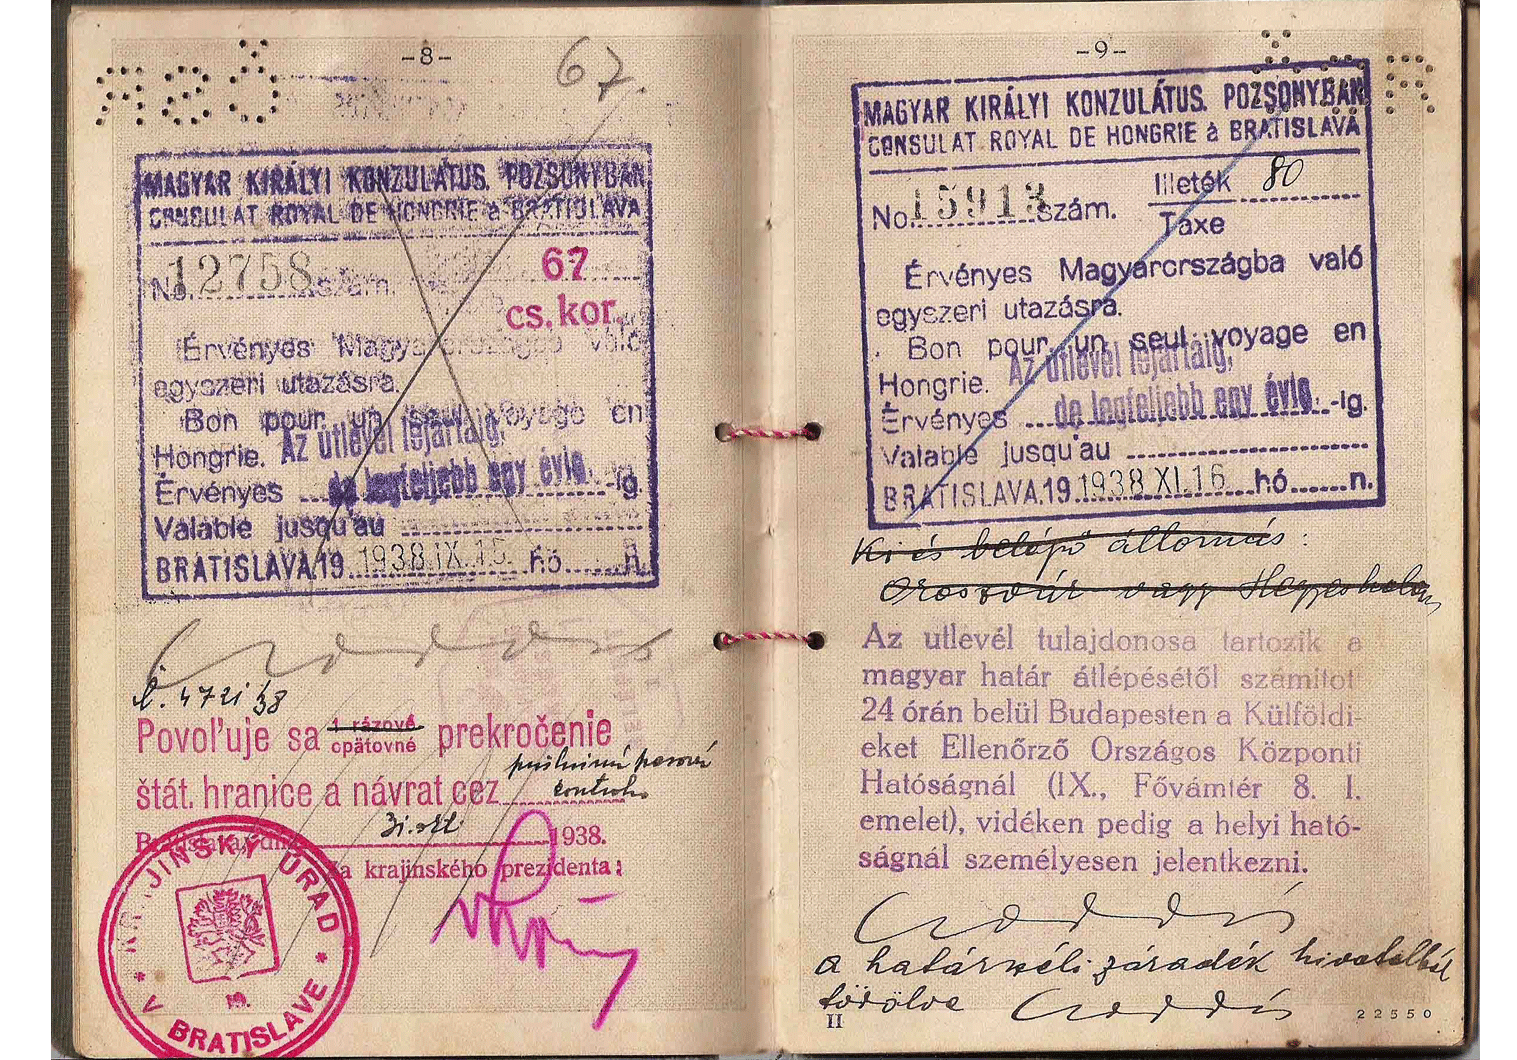 -8-
67.
MAGYAR KIRÁLYI KONZULÁTUS. POZSONYBAN
CONSULAT ROYAL DE HONGRIE à BRATISLAVA
No. 12758 szám.
67
cs. kor.
Érvényes Magyarországba való
egyszeri utazásra.
Bon pour un seul voyage en
Hongrie. Az útlevél lejártáig,
Érvényes de legfeljebb egy évig. -ig.
Valable jusqu'au
BRATISLAVA.19 1938.IX.15. hó n.
4721/38
Povoľuje sa 1 rázové prekročenie
cpätovné
štát. hranice a návrat cez
Bratislava, dňa 31. okt. 1938.
Za krajinského prezidenta:
KRAJINSKÝ ÚRAD
V BRATISLAVE
19.
-9-
MAGYAR KIRÁLYI KONZULÁTUS. POZSONYBAN
CONSULAT ROYAL DE HONGRIE à BRATISLAVA
No. 15913 szám. Illeték 80
Taxe
Érvényes Magyarországba való
egyszeri utazásra.
Bon pour un seul voyage en
Hongrie. Az útlevél lejártáig,
Érvényes de legfeljebb egy évig. -ig.
Valable jusqu'au
BRATISLAVA.19 1938 XI.16 hó n.
Ki és belépő állomás:
Oroszvár vagy Hegyeshalom
Az utlevél tulajdonosa tartozik a
magyar határ átlépésétől számitott
24 órán belül Budapesten a Külföldi-
eket Ellenőrző Országos Központi
Hatóságnál (IX., Fővámtér 8. I.
emelet), vidéken pedig a helyi ható-
ságnál személyesen jelentkezni.
a határszéli záradék hivatalból
törölve
II
22550